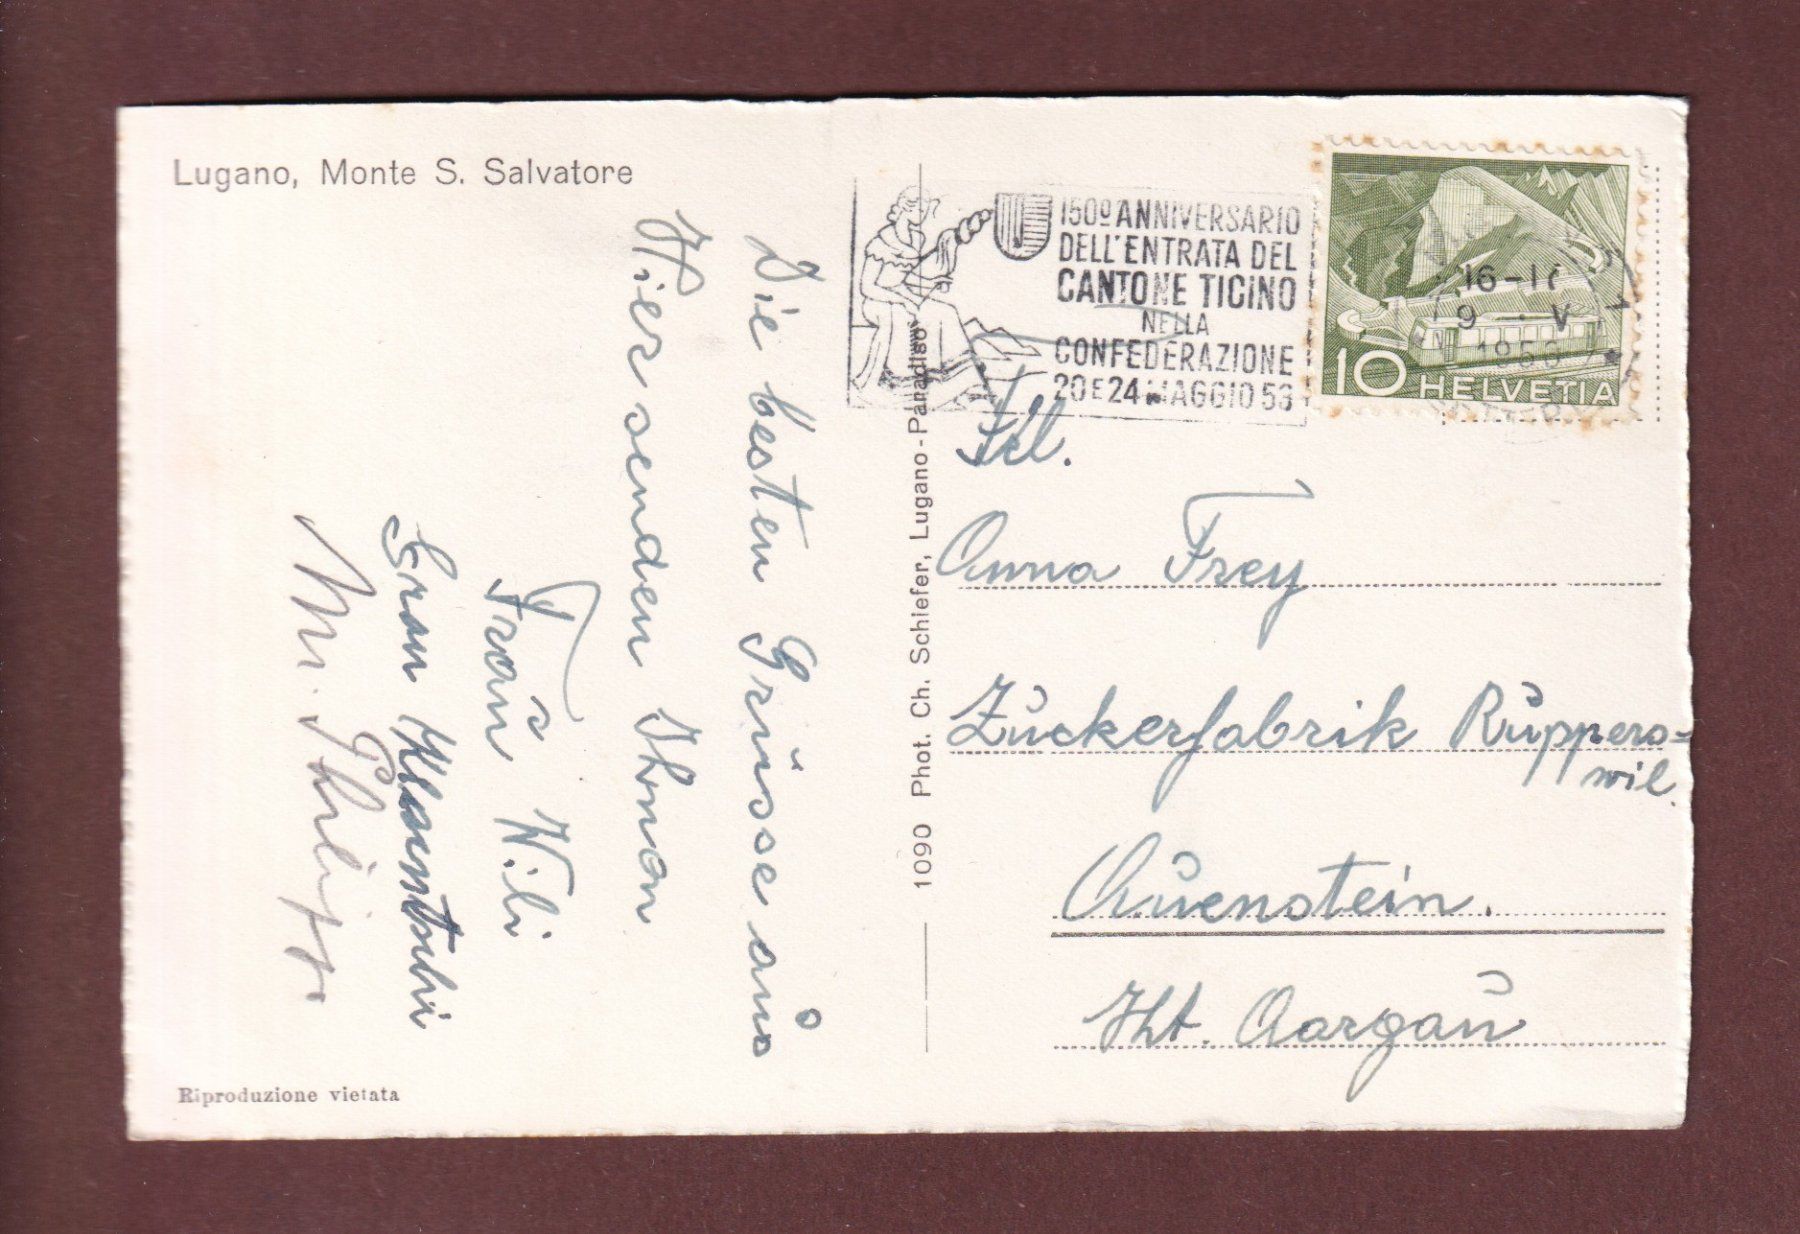 Lugano, Monte S. Salvatore
Die besten Grüsse aus
Hier senden Ihnen
Frau Wili
Frau
M. Philipp
Riproduzione vietata
1090 Phot. Ch. Schiefer, Lugano - Paradiso
150º ANNIVERSARIO
DELL'ENTRATA DEL
CANTONE TICINO
NELLA
CONFEDERAZIONE
20 E 24 MAGGIO 53
16-17
9 - V
1953
10 HELVETIA
Frl.
Anna Frey
ZuckerfabrikRuppers=
wil.
Auenstein.
Kt. Aargau